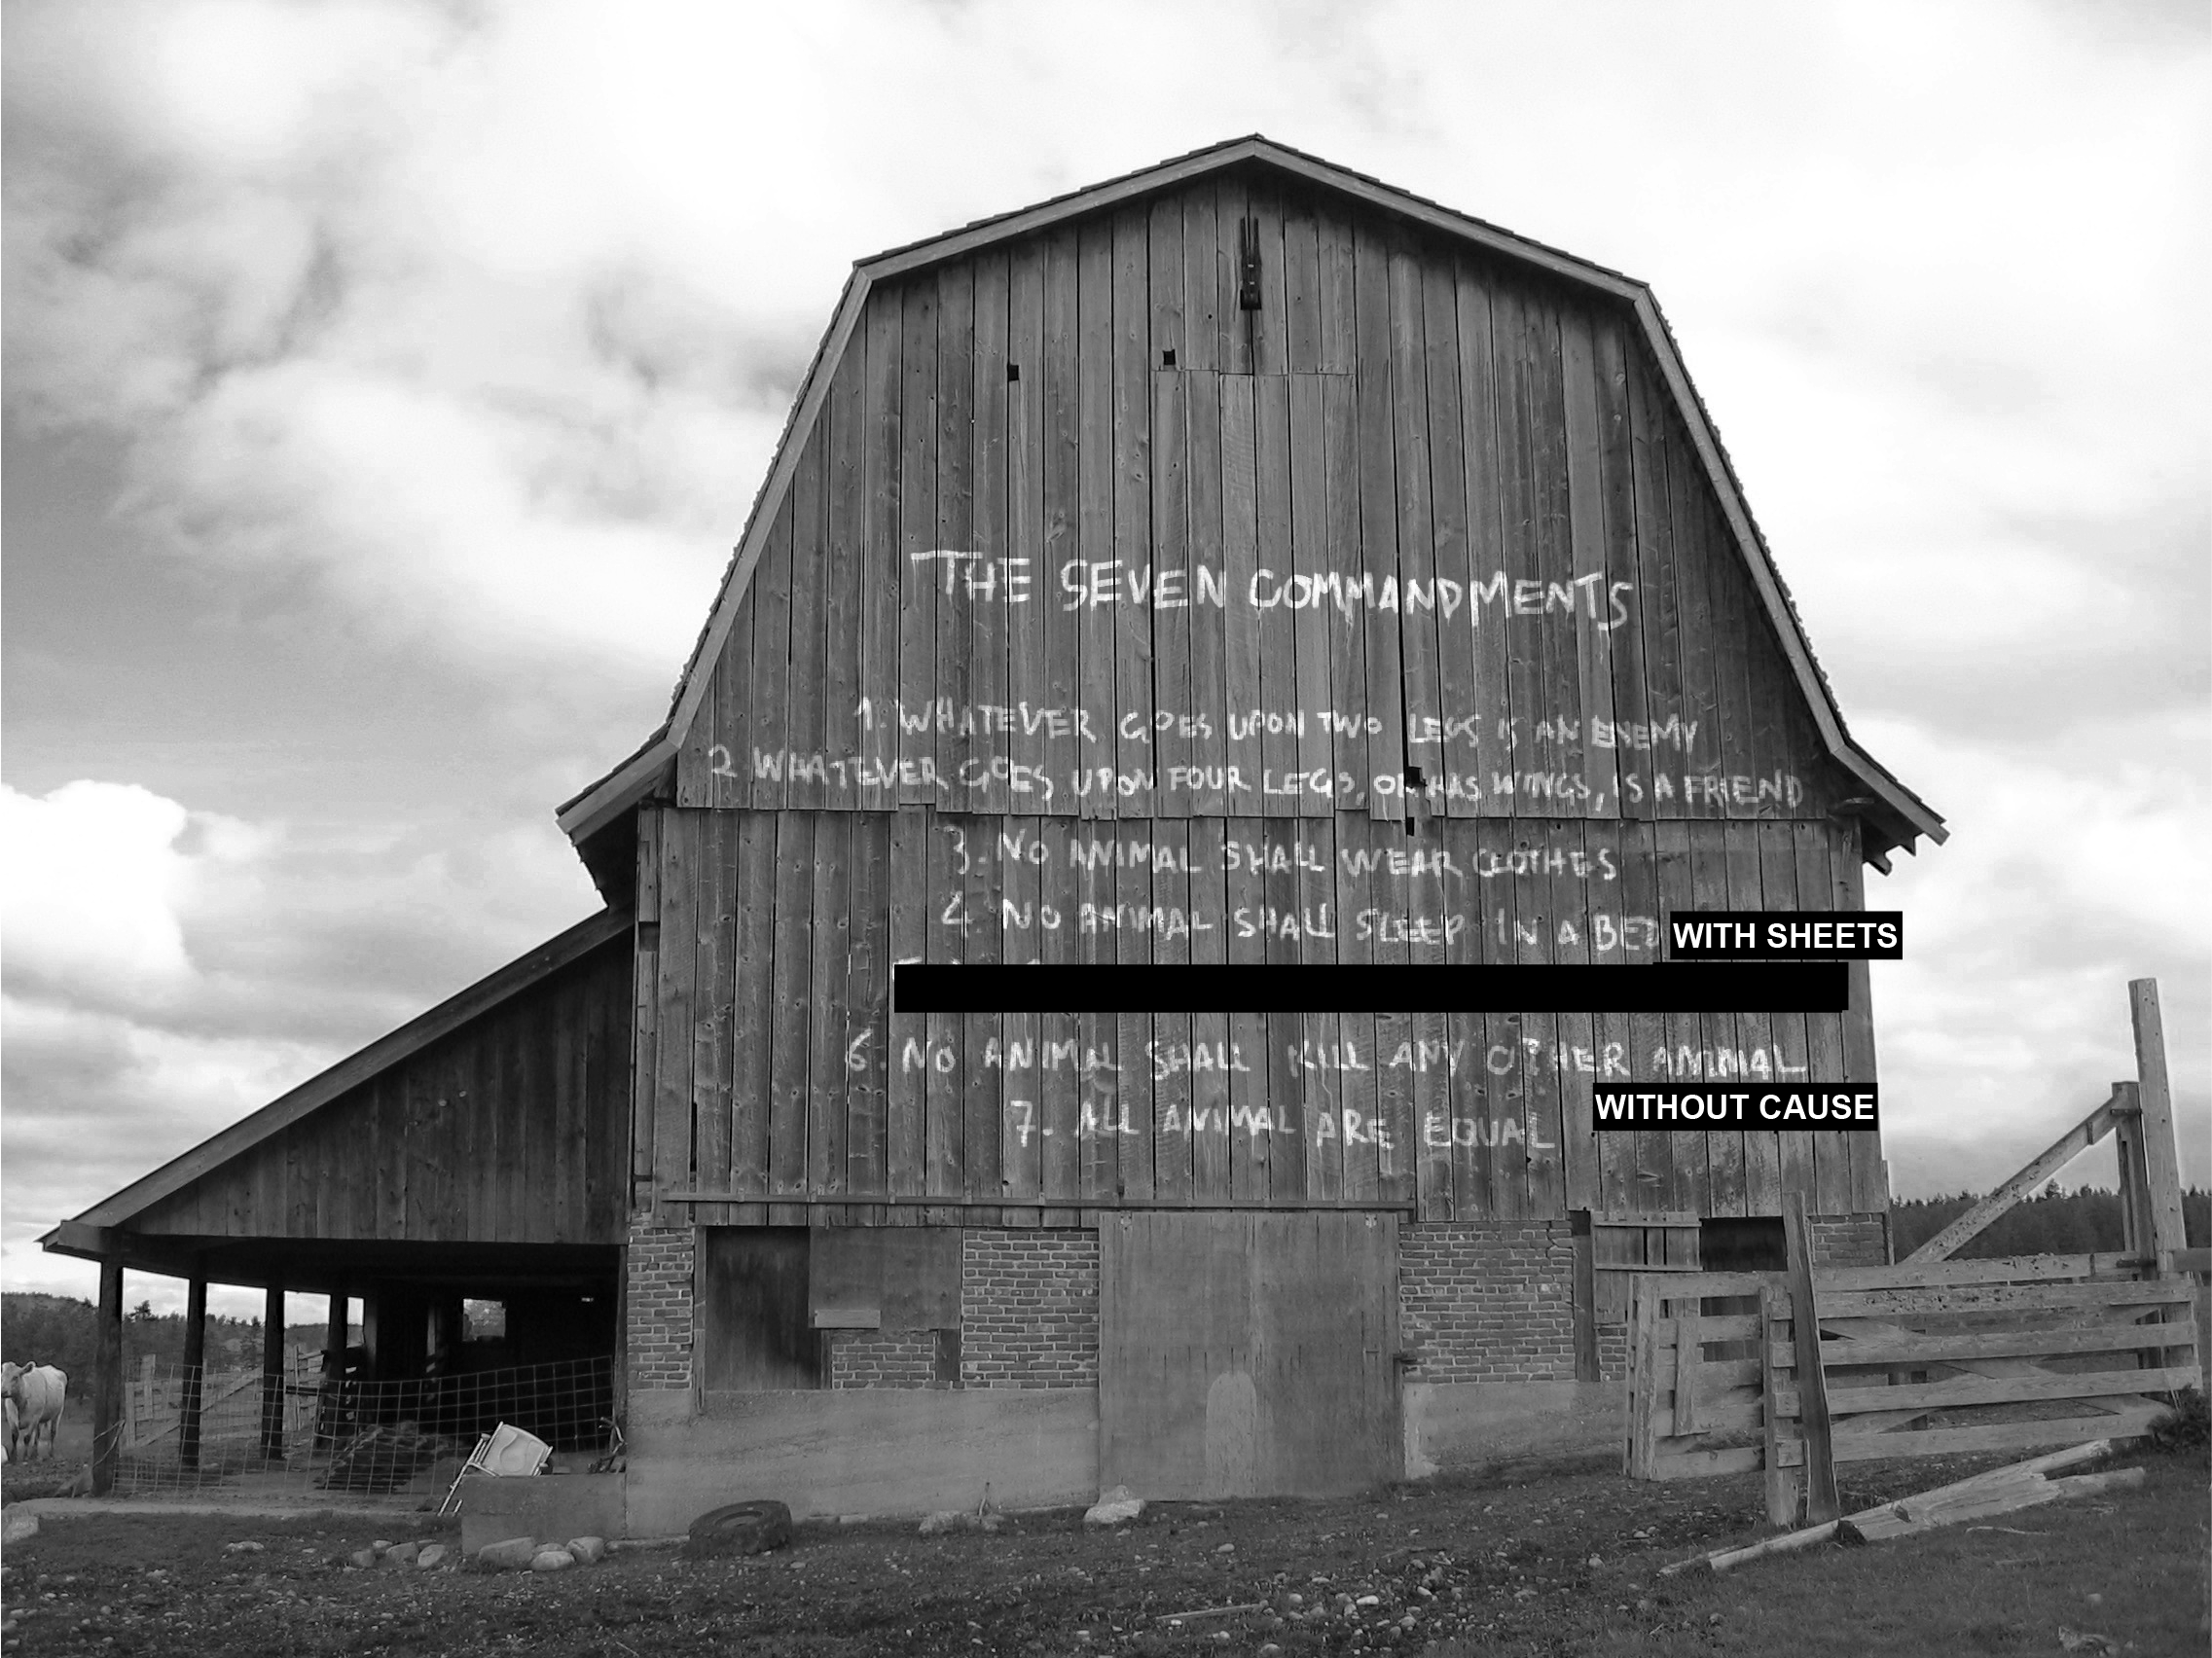 THE SEVEN COMMANDMENTS
1. WHATEVER GOES UPON TWO LEGS IS AN ENEMY
2 WHATEVER GOES UPON FOUR LEGS, OR HAS WINGS, IS A FRIEND
3. NO ANIMAL SHALL WEAR CLOTHES
4. NO ANIMAL SHALL SLEEP IN A BED WITH SHEETS
6. NO ANIMAL SHALL KILL ANY OTHER ANIMAL
WITHOUT CAUSE
7. ALL ANIMAL ARE EQUAL